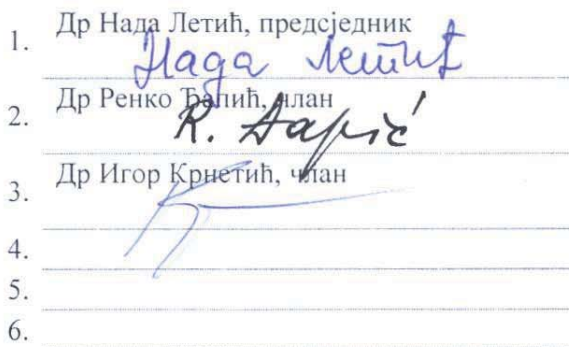 1. Др Нада Летић, предсједник
Нада Летић
2. Др Ренко Ђапић, члан
R. Đapić
3. Др Игор Крнетић, члан
4.
5.
6.